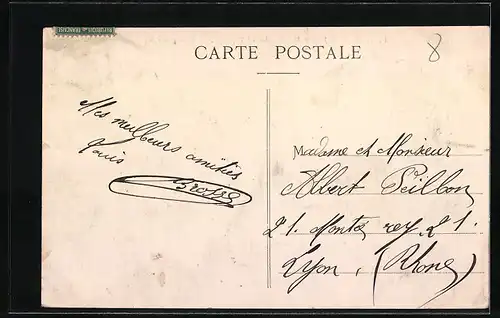 CARTE POSTALE
8
Mes meilleurs amitiés
Louis
Brossy
Madame et Monsieur
Albert Peillon
21. Montée rey. 21.
Lyon, (Rhone)